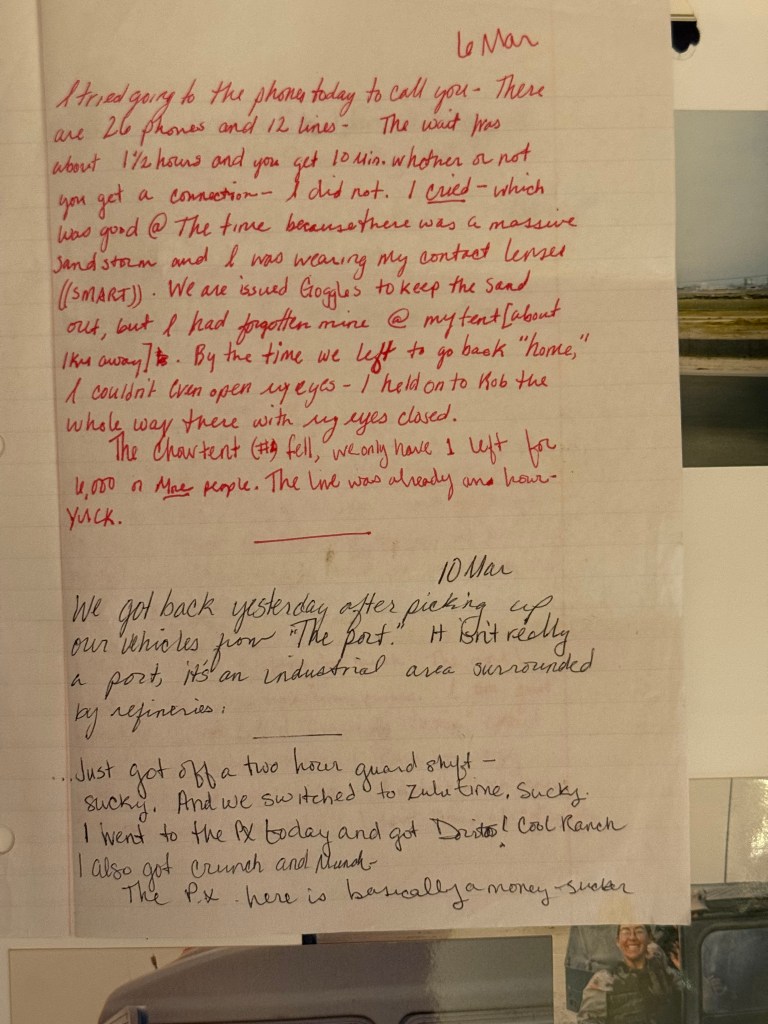 6 Mar
I tried going to the phones today to call you - There
are 26 phones and 12 lines - The wait was
about 1 1/2 hours and you get 10 min. whether or not
you get a connection - I did not. I cried - which
was good @ The time because there was a massive
sandstorm and I was wearing my contact lenses
((SMART)). We are issued Goggles to keep the sand
out, but I had forgotten mine @ my tent [about
1km away]. By the time we left to go back "home,"
I couldn't even open my eyes - I held on to Rob the
whole way there with my eyes closed.
The Chowtent fell, we only have 1 left for
6,000 or More people. The line was already an hour -
YUCK.
10 Mar
We got back yesterday after picking up
our vehicles from "The port." It isn't really
a port, it's an industrial area surrounded
by refineries.
...Just got off a two hour guard shift -
sucky. And we switched to Zulu time. Sucky.
I went to the PX today and got Doritos! Cool Ranch
I also got crunch and Munch -
The P.X. here is basically a money-sucker